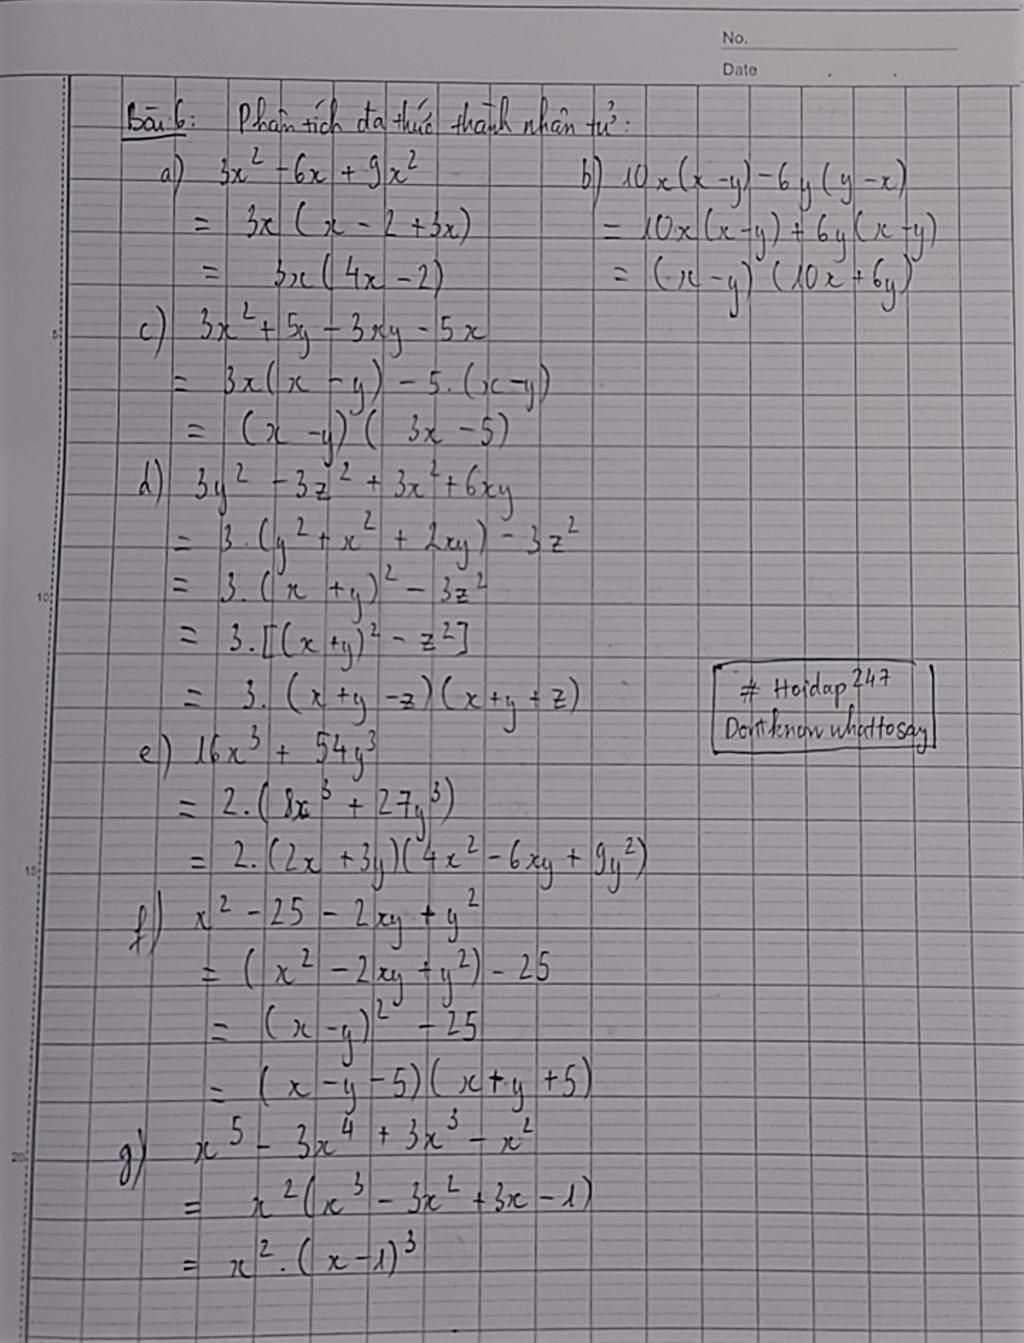 No.
Date
Bài 6: Phân tích đa thức thành nhân tử:
a) 3x² - 6x + 9x²
= 3x (x - 2 + 3x)
= 3x (4x - 2)
b) 10x(x - y) - 6y (y - x)
= 10x(x - y) + 6y(x - y)
= (x - y) (10x + 6y)
c) 3x² + 5y - 3xy - 5x
= 3x(x - y) - 5.(x - y)
= (x - y) (3x - 5)
d) 3y² - 3z² + 3x² + 6xy
= 3.(y² + x² + 2xy) - 3z²
= 3.(x + y)² - 3z²
= 3.[(x + y)² - z²]
= 3.(x + y - z)(x + y + z)
# Hoidap247
Dontknowwhattosay
e) 16x³ + 54y³
= 2.(8x³ + 27y³)
= 2.(2x + 3y)(4x² - 6xy + 9y²)
f) x² - 25 - 2xy + y²
= (x² - 2xy + y²) - 25
= (x - y)² - 25
= (x - y - 5)(x + y + 5)
g) x⁵ - 3x⁴ + 3x³ - x²
= x²(x³ - 3x² + 3x - 1)
= x².(x - 1)³
5
10
15
20